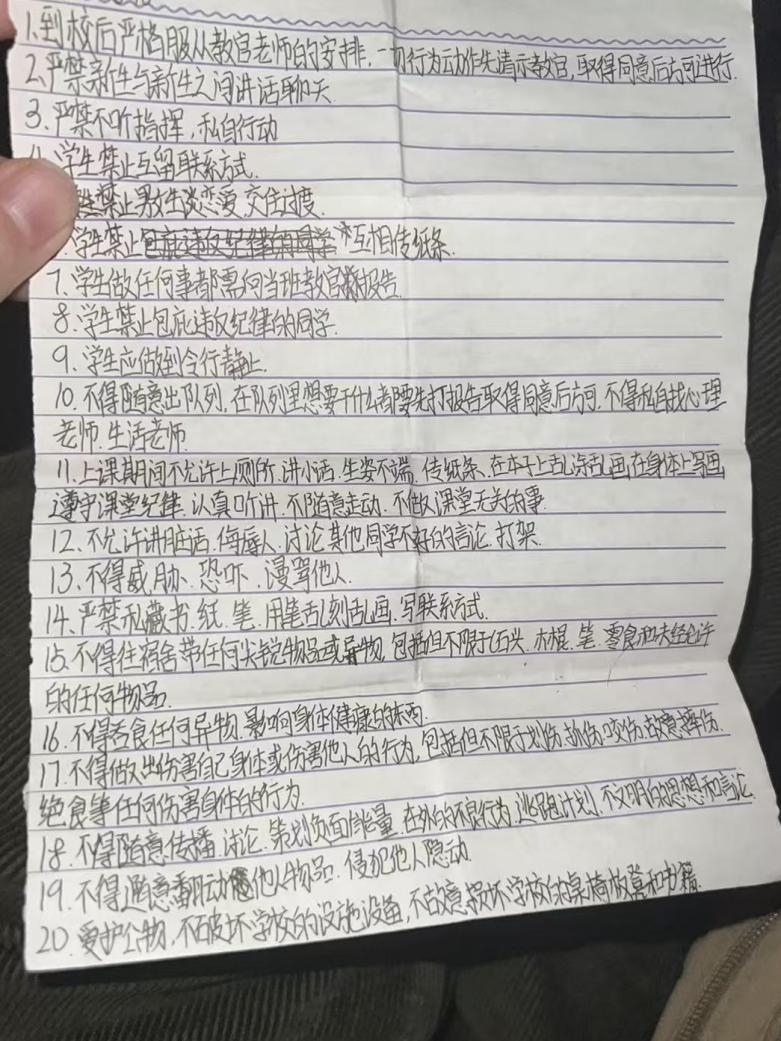 1.到校后严格服从教官老师的安排,一切行为动作先请示教官,取得同意后方可进行.
2.严禁新生与新生之间讲话聊天
3.严禁不听指挥,私自行动
学生禁止互留联系方式.
禁止男女生谈恋爱,交往过度.
学生禁止包庇违反纪律的同学*互相传纸条.
7.学生做任何事都需向当班教官报告.
8.学生禁止包庇违反纪律的同学.
9.学生应做到令行禁止.
10.不得随意出队列,在队列里想要干什么都要先打报告取得同意后方可.不得私自找心理
老师.生活老师.
11.上课期间不允许上厕所.讲小话.坐姿不端.传纸条.在本子上乱涂乱画,在身体上写画
遵守课堂纪律.认真听讲.不随意走动.不做课堂无关的事.
12.不允许讲脏话.侮辱人.讨论其他同学不好的言论.打架.
13.不得威胁、恐吓.漫骂他人.
14.严禁私藏书.纸.笔.用笔乱刻乱画.写联系方式.
15.不得往宿舍带任何尖锐物品或异物,包括但不限于石头.木棍.笔.零食和未经允许
的任何物品.
16.不得吞食任何异物.影响身体健康的东西.
17.不得做出伤害自己身体或伤害他人的行为,包括但不限于划伤.抓伤.咬伤.故意摔伤.
绝食等任何伤害身体的行为.
18.不得随意传播.讨论.策划负面能量.在外的不良行为.逃跑计划.不文明的思想和言论
19.不得随意翻动他人物品.侵犯他人隐动.
20.爱护公物,不破坏学校的设施设备,不故意损坏学校的桌椅板凳和书籍.